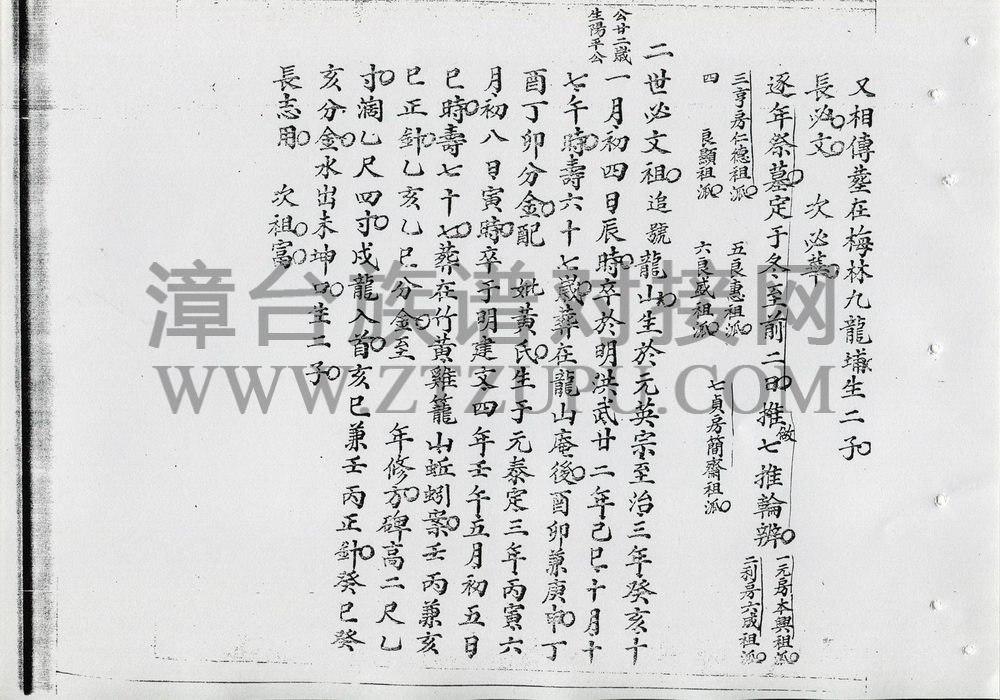 又相傳塟在梅林九龍壙生二子
長必文 次必華
逐年祭墓定于冬至前二日推做七推輪辦
一元房本興祖派
二利房六成祖派
三亨房仁德祖派
四 良顯祖派
五良惠祖派
六良盛祖派
七貞房簡齋祖派
公廿二歲
生陽平公
二世必文祖追號龍山生於元英宗至治三年癸亥十
一月初四日辰時卒於明洪武廿二年己巳十月十
七午時壽六十七歲葬在龍山庵後酉卯兼庚申丁
酉丁卯分金配 妣黃氏生于元泰定三年丙寅六
月初八日寅時卒于明建文四年壬午五月初五日
巳時壽七十七葬在竹黃雞籠山蚯蚓案壬丙兼亥
巳正針乙亥乙巳分金至 年修方碑高二尺七
寸濶乙尺四寸戍龍入首亥巳兼壬丙正針癸巳癸
亥分金水出未坤口生二子
長志用 次祖富
漳台族谱对接网
WWW.ZTZUPU.COM